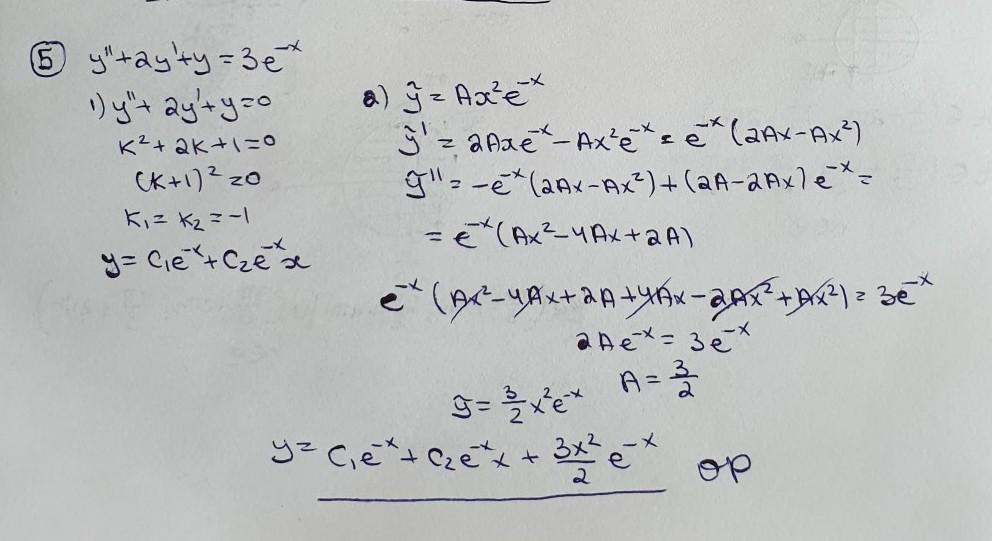 5 y''+2y'+y=3e^{-x}
1) y''+2y'+y=0
k²+2k+1=0
(k+1)²=0
k₁=k₂=-1
y=C₁e^{-x}+C₂e^{-x}x
2) ỹ=Ax²e^{-x}
ỹ'=2Axe^{-x}-Ax²e^{-x}=e^{-x}(2Ax-Ax²)
ỹ''=-e^{-x}(2Ax-Ax²)+(2A-2Ax)e^{-x}=
=e^{-x}(Ax²-4Ax+2A)
e^{-x}(Ax²-4Ax+2A+4Ax-2Ax²+Ax²)=3e^{-x}
2Ae^{-x}=3e^{-x}
A=3/2
ỹ=3/2x²e^{-x}
y=C₁e^{-x}+C₂e^{-x}x+3x²/2 e^{-x} op